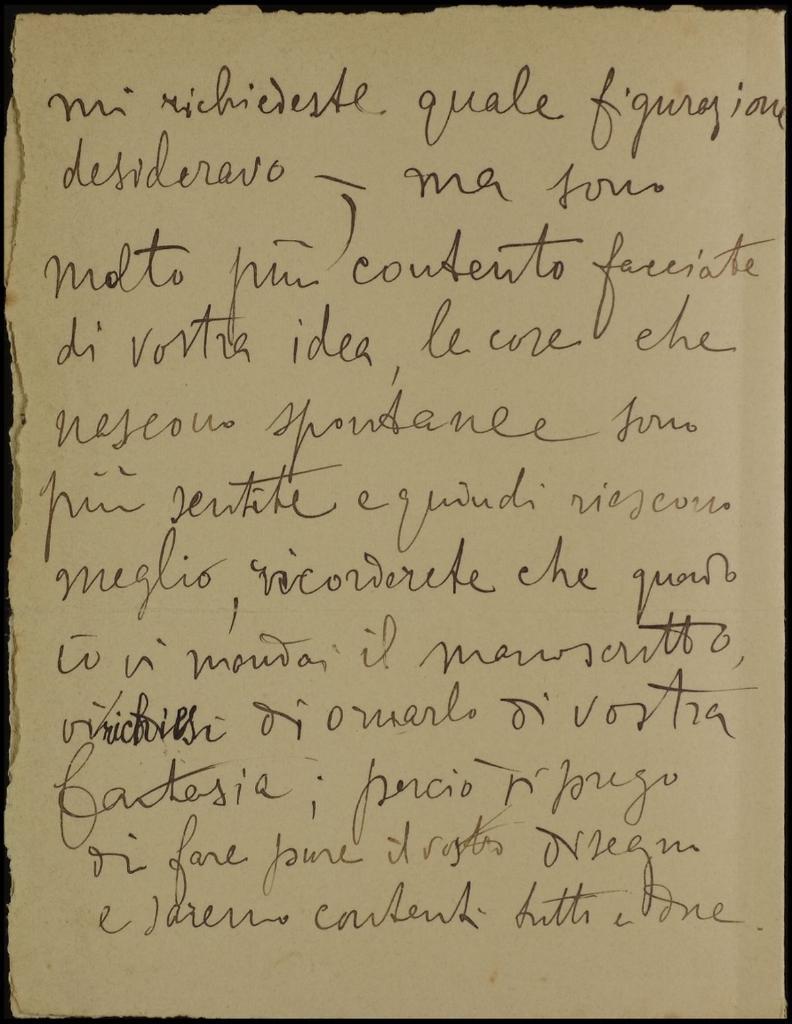 mi richiedeste quale figurazione
desideravo — ma sono
molto più contento facciate
di vostra idea, le cose che
nascono spontanee sono
più sentite e quindi riescono
meglio, ricorderete che quando
io vi mandai il manoscritto,
vi richiesi di ornarlo di vostra
fantasia; perciò vi prego
di fare pure il vostro disegno
e saremo contenti tutti e due.